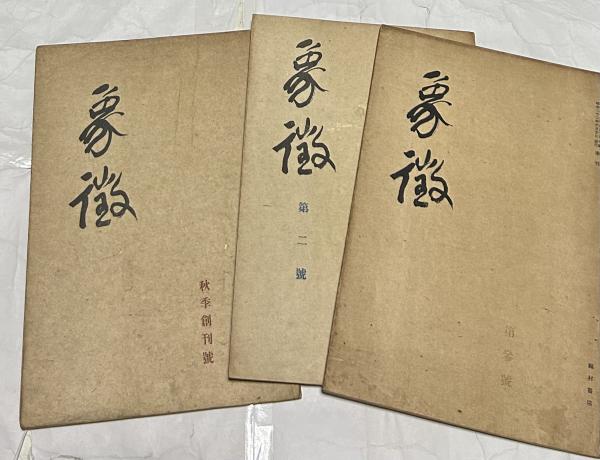 象徴
秋季創刊號
象徴
第二號
象徴
第參號